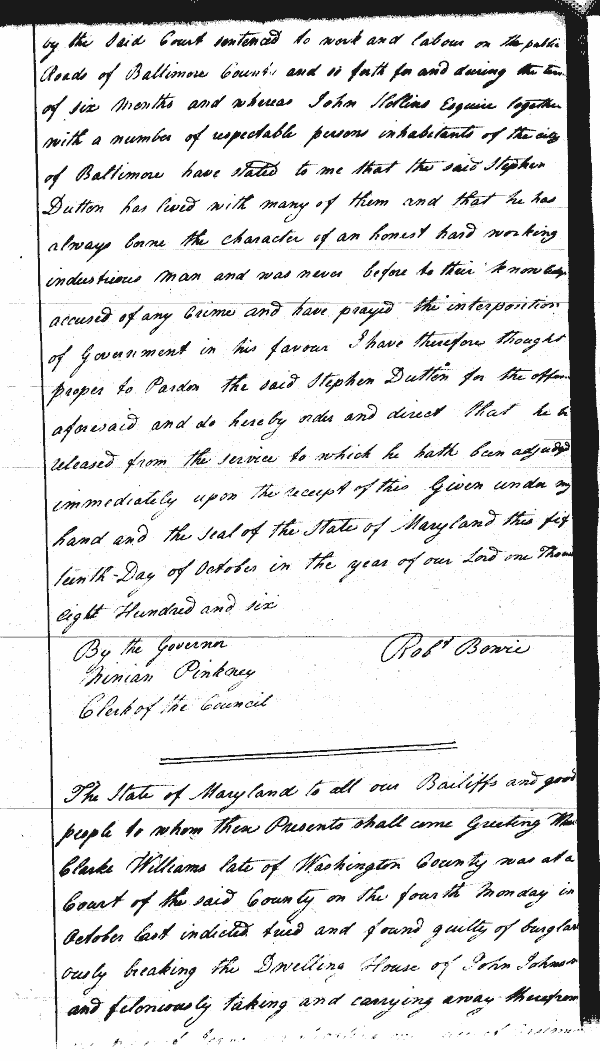 by the said Court sentenced to work and labour on the public
Roads of Baltimore County and so forth for and during the
of six Months and whereas John Hollins Esquire together
with a number of respectable persons inhabitants of the city
of Baltimore have stated to me that the said Stephen
Dutton has lived with many of them and that he has
always borne the character of an honest hard working
industrious man and was never before to their knowledge
accused of any Crime and have prayed the interposition
of Government in his favour I have therefore thought
proper to Pardon the said Stephen Dutton for the offen
aforesaid and do hereby order and direct that he be
released from the service to which he hath been adjudged
immediately upon the receipt of this Given under my
hand and the seal of the State of Maryland this fif
teenth Day of October in the year of our Lord one Thous
eight Hundred and six
By the Governor
Robt Bowie
Ninian Pinkney
Clerk of the Council
The State of Maryland to all our Bailiffs and good
people to whom these Presents shall come Greeting
Clarke Williams late of Washington County was at a
Court of the said County on the fourth Monday in
October last indicted tried and found guilty of burglar
ously breaking the Dwelling House of John Johnson
and feloniously taking and carrying away therefrom